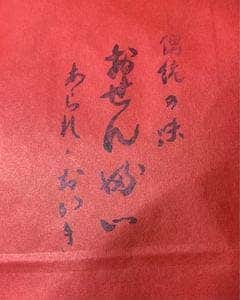 傳統の味
おせんべい
あられ・おかき